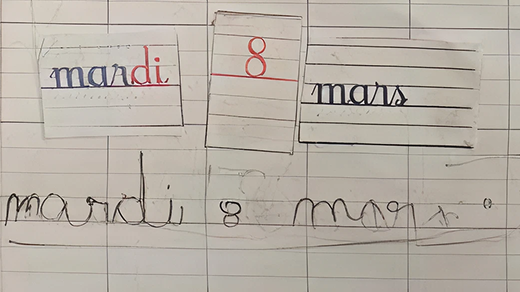 mardi 8 mars
mardi 8 mars